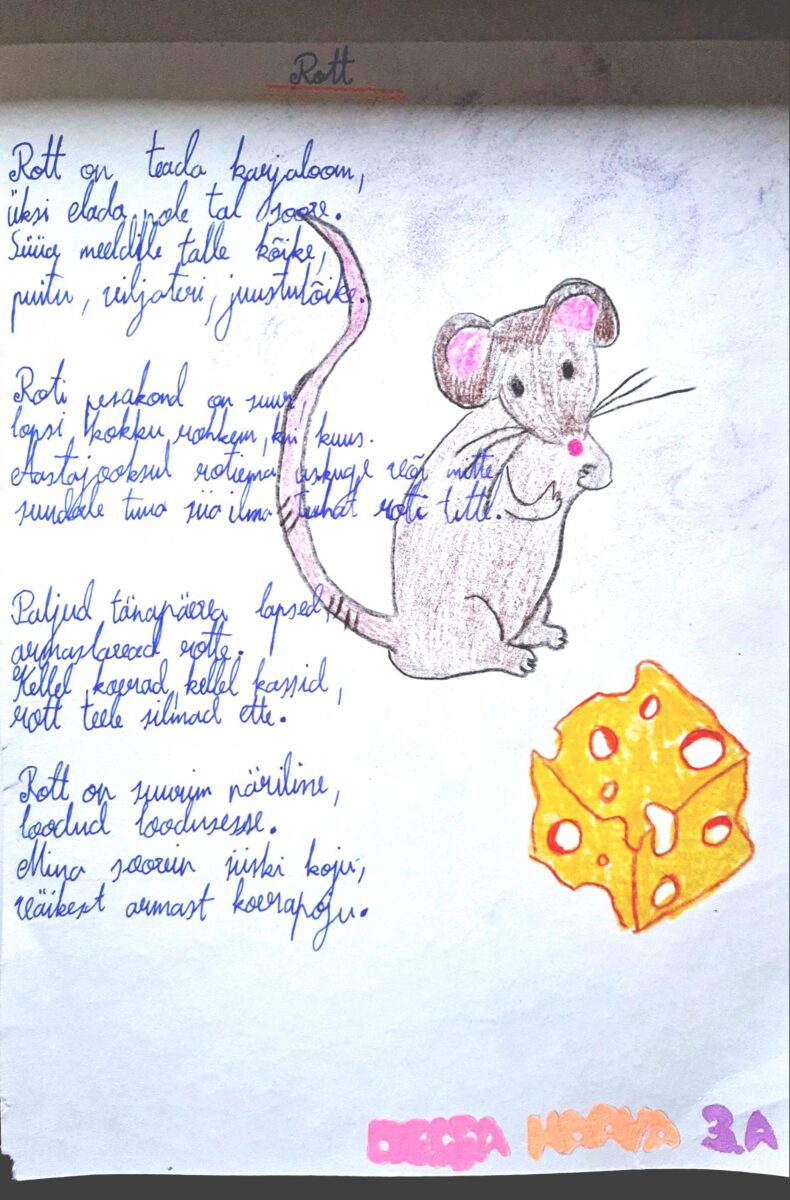 Rott
Rott on teada karjaloom,
üksi elada pole tal soov.
Süüa meeldib talle kõike,
putru, viljateri, juustulõike.
Roti pesakond on suur,
lapsi kokku rohkem, kui kuus.
Aastajooksul rotiema uskuge või mitte
sünda­le tuua siia ilma tuhat roti titte.
Paljud tänapäeva lapsed,
armastavad rotte.
Kellel koerad, kellel kassid,
rott teele silmad ette.
Rott on suurim näriline,
loodud loodusesse.
Mina soovin siiski koju,
väikest armast koerapoju.
HAAVA 3.A